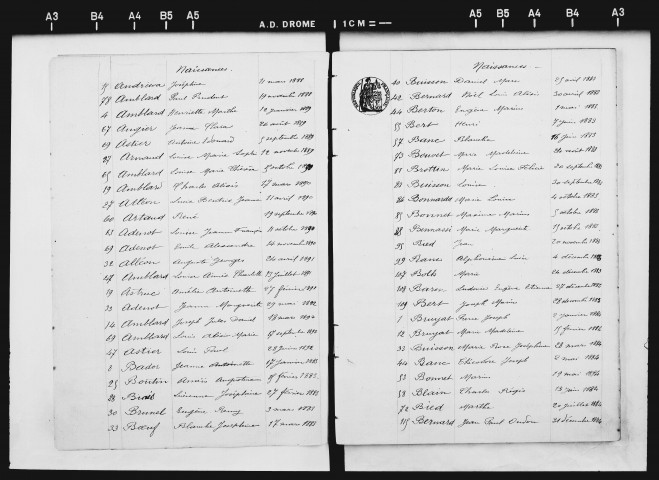 A3 B4 A4 B5 A5 A.D. DROME 1 CM = A5 B5 A4 B4 A3
Naissances.
Andrieva Joséphine 11 mars 1888
78 Amblard Paul Prudent 19 novembre 1888
4 Amblard Henriette Marthe 12 janvier 1889
67 Augier Jeanne Clara 20 août 1889
69 Astier Antoine Edouard 5 septembre 1889
Arnaud Louise Marie 22 novembre 1889
65 Amblard Louise Marie 5 octobre 1890
19 Amblard Charles Alois 27 mars 1890
27 Béatrix Jeanne 11 avril 1890
60 Artaud René 19 septembre 1890
63 Adenot Louise Jeanne François 11 octobre 1890
69 Adenot Emile Alexandre 14 novembre 1890
32 Alléon Auguste Georges 24 avril 1891
Amblard Louise Aimée 13 juillet 1891
19 Antoinette 27 février 1891
33 Adenot Jeanne Marguerite 29 mai 1892
14 Amblard Joseph Jules Daniel 18 mars 1894
69 Amblard Louis Alix Marie 6 septembre 1891
47 Astier Louis Paul
6 Bador Jeanne Antoinette 17 janvier 1883
25 Boutin Anaïs Augustine 5 février 1883
28 Joséphine 27 février 1883
30 Brunel Eugène Remy 3 mars 1883
33 Bœuf Blanche Joséphine 27 mars 1883
Naissances.
40 Buisson Daniel Marc 25 avril 1883
42 Bernard Noël Louis 30 avril 1883
44 Berton Eugène Marius 1 mai 1883
55 Bert Henri 7 juin 1883
57 Banc Blanche 16 juin 1883
73 Bouvet Marie Madeleine 20 août 1883
81 Brottin Marie Louise 20 septembre 1883
82 Buisson Louise 30 septembre 1883
84 Bonnardo Marie Louise 4 octobre 1883
85 Bonnet Maxime Marius 5 octobre 1883
88 Marie Marguerite 15 octobre 1883
95 Bied Jean 20 novembre 1883
99 Alphonsine 4 décembre 1883
107 Both Marie 24 décembre 1883
108 Eugène Etienne 27 décembre 1883
109 Bert Joseph Marius 28 décembre 1883
1 Bruyat Pierre Joseph 2 janvier 1884
12 Bruyat Marie Madeleine 15 février 1884
33 Buisson Marie Rose Joséphine 28 mars 1884
44 Banc Théodore Joseph 2 mai 1884
53 Bonnet Marius 19 mai 1884
58 Blain Charles Régis 13 juin 1884
72 Bied Marthe 20 juillet 1884
115 Bernard Jean Paul 31 décembre 1884